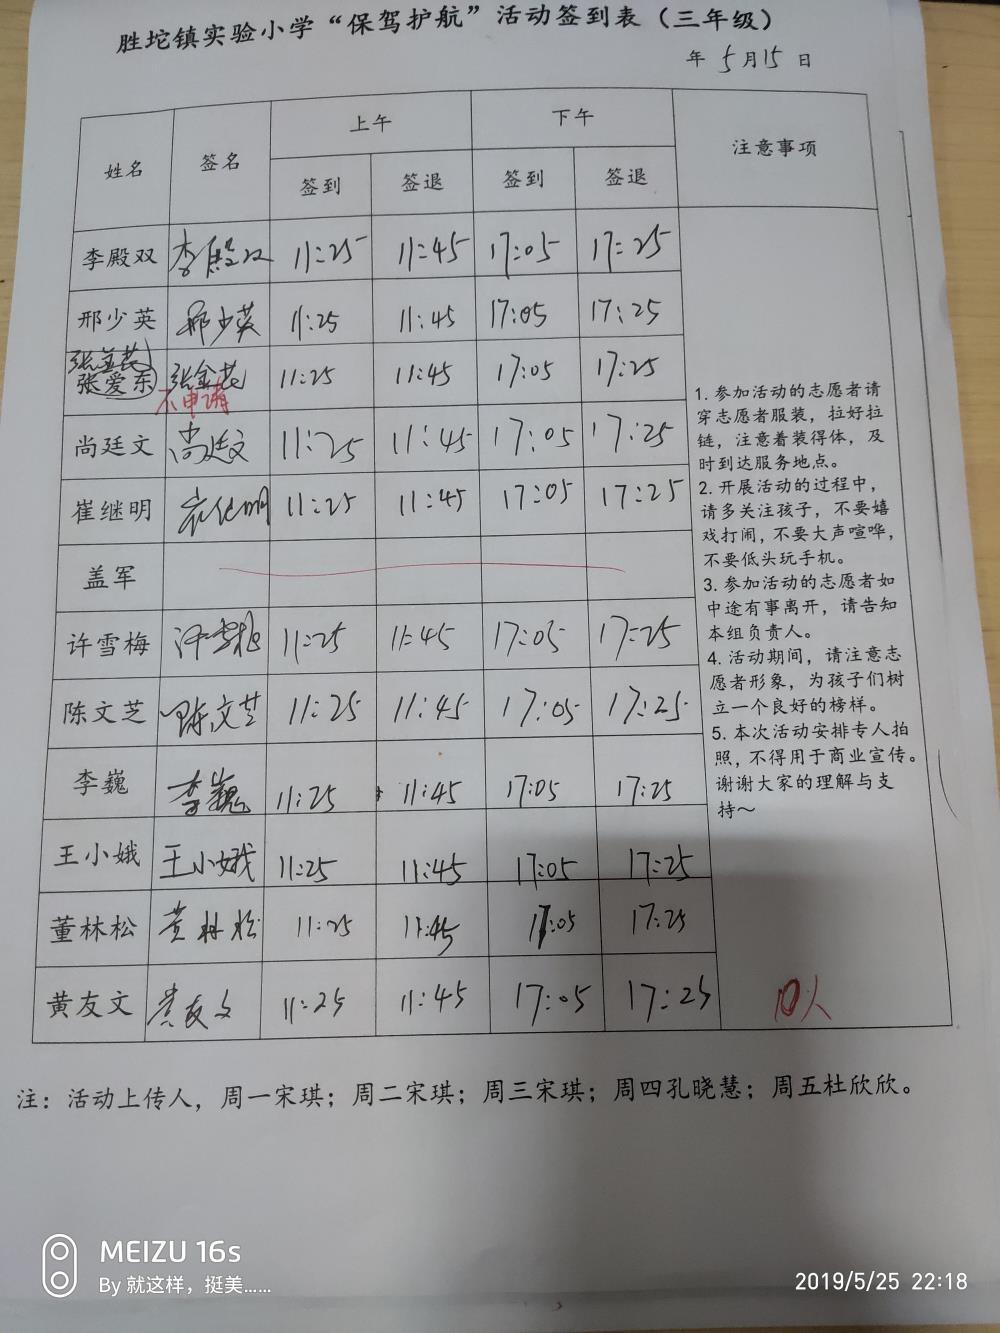 胜坨镇实验小学“保驾护航”活动签到表（三年级）
年 5月15日
姓名 签名 上午 下午 注意事项
签到 签退 签到 签退
李殿双 李殿双 11:25 11:45 17:05 17:25
邢少英 邢少英 11:25 11:45 17:05 17:25
张金花
张爱东 张金花 11:25 11:45 17:05 17:25
不申请
尚廷文 尚廷文 11:25 11:45 17:05 17:25
崔继明 崔继明 11:25 11:45 17:05 17:25
盖军
许雪梅 许雪梅 11:25 11:45 17:05 17:25
陈文芝 陈文芝 11:25 11:45 17:05 17:25
李巍 李巍 11:25 11:45 17:05 17:25
王小娥 王小娥 11:25 11:45 17:05 17:25
董林松 董林松 11:25 11:45 17:05 17:25
黄友文 黄友文 11:25 11:45 17:05 17:25
1. 参加活动的志愿者请
穿志愿者服装，拉好拉
链，注意着装得体，及
时到达服务地点。
2. 开展活动的过程中，
请多关注孩子，不要嬉
戏打闹，不要大声喧哗，
不要低头玩手机。
3. 参加活动的志愿者如
中途有事离开，请告知
本组负责人。
4. 活动期间，请注意志
愿者形象，为孩子们树
立一个良好的榜样。
5. 本次活动安排专人拍
照，不得用于商业宣传。
谢谢大家的理解与支
持～
10人
注：活动上传人，周一宋琪；周二宋琪；周三宋琪；周四孔晓慧；周五杜欣欣。
MEIZU 16s
By 就这样，挺美……
2019/5/25 22:18